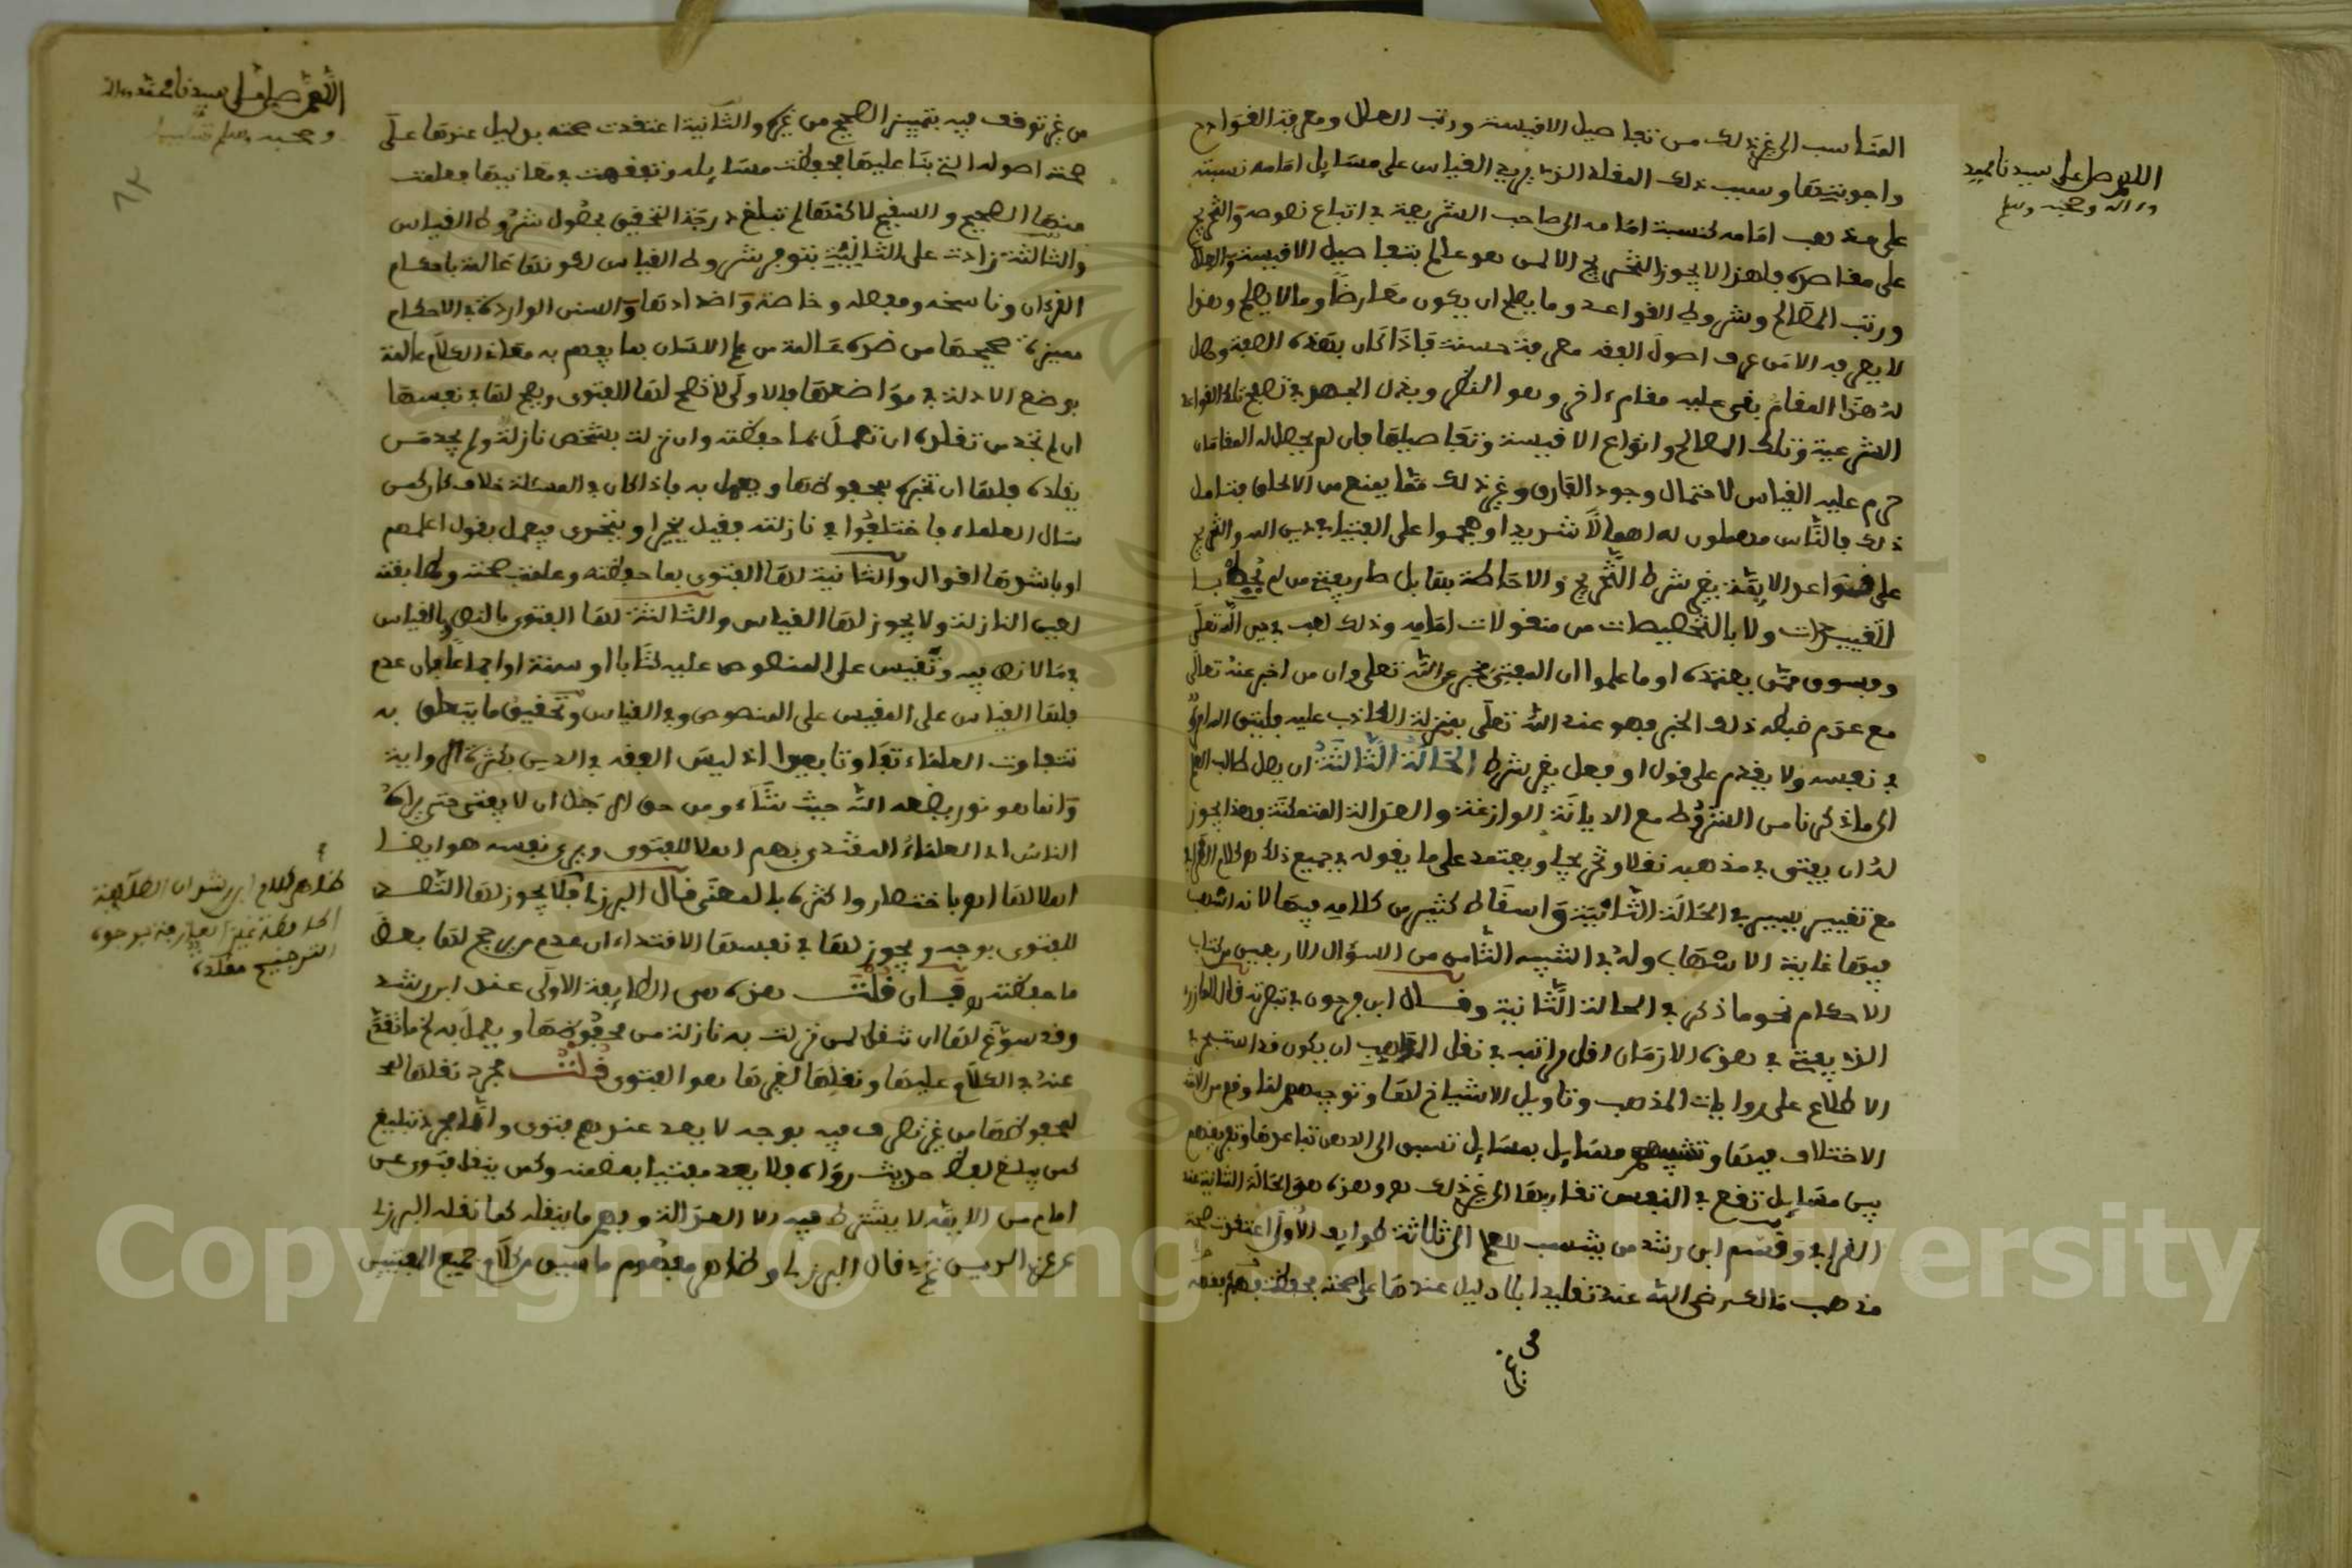 اللهم صل على سيدنا محمد
وءاله وصحبه وسلم
المناسب الى غير ذلك من تفاصيل الاقيسة ورتب العلل ومعرفة القوادح
واجوبتها وسبب ذلك المقلد الذي يريد القياس على مسايل امامه نسبته
على مذهب امامه كنسبة امامه الى صاحب الشريعة في اتباع نصوصه والتخريج
على مقاصده فلهذا لا يجوز التخريج الا لمن هو عالم بتفاصيل الاقيسة والعلل
ورتب المصالح وشروط القواعد وما يصلح ان يكون معارضا وما لا يصلح وهذا
لا يعرفه الا من عرف اصول الفقه معرفة حسنة فاذا كان بهذه الصفة وحصل
له هذا المقام بقى عليه مقام ءاخر وهو النظر وبذل الجهد في تصفح تلك القواعد
الشرعية وتلك المصالح وانواع الاقيسة وتفاصيلها فان لم يحصل له المقامان
حرم عليه القياس لاحتمال وجود الفارق وغير ذلك مما يمنع من الالحاق فتامل
ذلك فالناس مهملون له اهمالا شديدا وهجموا على الفتيا في دين الله والتخريج
على قواعد الايمة بغير شرط التخريج والاحاطة بها بل صار يفتي من لم يحط با
لتقييدات ولا بالتخصيصات من منقولات امامه وذلك لعب في دين الله تعلى
وفسوق ممن يعتمده او ما علموا ان المفتي مخبر عن الله تعلى وان من اخبر عنه تعالى
مع عدم ضبطه ذلك الخبر فهو عند الله تعلى بمنزلة الكاذب عليه فليتق الله امرؤ
في نفسه ولا يقدم على قول او فعل بغير شرط الحالة الثالثة ان يصل طالب العلم
الى ما ذكرنا من الشروط مع الديانة الوازعة والعدالة المتمكنة فهذا يجوز
له ان يفتي في مذهبه نقلا وتخريجا ويعتمد على ما يقوله في جميع ذلك هو كلام القرافي
مع تغيير يسير في الحالة الثانية واسقاط كثير من كلامه فيها لانه اسهب
فيها غاية الاسهاب وله في التنبيه الثامن من السؤال الاربعين من كتاب
الاحكام نحو ما ذكر في الحالة الثانية وقال ابن فرحون في تبصرته قال المازري
الذي يفتي في هذه الازمان اقل مراتبه في نقل المذهب ان يكون قد استبحر في
الاطلاع على روايات المذهب وتاويل الاشياخ لها وتوجيههم لما وقع من الا
الاختلاف فيها وتشبيههم مسايل بمسايل تسبق الى الذهن تباعدها وتفريقهم
بين مسايل تقع في النفس تقاربها الى غير ذلك هو وهذه هي الحالة الثانية عند
القرافي وقسم ابن رشد من ينسب للعلم الى ثلاثة طوايف الاولى اعتقدت صحة
مذهب مالك رضى الله عنه تقليدا بلا دليل عندها على صحته فحفظت
من غير
اللهم صل على سيدنا محمد وءاله
وصحبه وسلم تسليما
٦٢
من غير توقف فيه بتمييز الصحيح من غيره والثانية اعتقدت صحته بدليل عندها على
صحة اصوله التي بنا عليها فحفظت مسايله وتفقهت في معانيها فعلمت
منها الصحيح والسقيم لاكنها لم تبلغ درجة التحقيق بحصول شروط القياس
والثالثة زادت على الثانية بتوفر شروط القياس لكونها عالمة باحكام
القرءان وناسخه ومفصله وخاصه واضدادها والسنن الواردة في الاحكام
مميزة صحيحها من ضده عالمة من علم اللسان بما يفهم به معاني الكلام عالمة
بوضع الادلة في مواضعها فالاولى لا تصح لها الفتوى ويصح لها في نفسها
ان لم تجد من تقلده ان تعمل بما حفظته وان نزلت بشخص نازلة ولم يجد من
يقلده فلها ان تخبره بمحفوظها ويعمل به فاذا كان في المسئلة خلاف كان كمن
سال العلماء فاختلفوا في نازلته فقيل يخير او يتحرى فيعمل بقول اعلمهم
او باشدها اقوال والثانية لها الفتوى بما حفظته وعلمت صحته وطابقته
لعين النازلة ولا يجوز لها القياس والثالثة لها الفتوى بالنص وبالقياس
في ما لا نص فيه وتقيس على المنصوص عليه كتابا او سنة او اجماعا فان عدم
فلها القياس على المقيس على المنصوص وفي القياس وتحقيق ما يتعلق به
تتفاوت العلماء تفاوتا بعيدا اذ ليس الفقه في الدين بكثرة الرواية
وانما هو نور يضعه الله حيث شاء ومن حق الرجل ان لا يفتي حتى يراه
الناس اي العلماء المقتدى بهم اهلا للفتوى ويرى نفسه هو ايضا
اهلا لها هو باختصار واكثره بالمعنى قال البرزلي فلا يجوز لها التصد
للفتوى بوجه ويجوز لها في نفسها الاقتداء ان عدم مرجح لها بعض
ما حفظته هو فان قلت هذه هي الطايفة الاولى عند ابن رشد
وقد سوغ لها ان تنقل لمن نزلت به نازلة من محفوظها ويعمل به كما تقدم
عنه في الكلام عليها ونقلها لغيرها هو الفتوى قلت مجرد نقلها
لمحفوظها من غير تصرف فيه بوجه لا يعد عندهم فتوى وانما مجرد تبليغ
كمن يبلغ لفظ حديث رواه فلا يعد مفتيا بمضمنه وكمن ينقل فتوى عن
امام من الايمة لا يشترط فيه الا العدالة وفهم ما ينقله كما نقله البرزلي
عن عز الدين ثم قال البرزلي وظاهر مفهوم ما سبق من كلام جميع المفتيين
ظاهر كلام ابن رشد ان الطايفة
الترجيح مقلده
Copyright © King Saud University